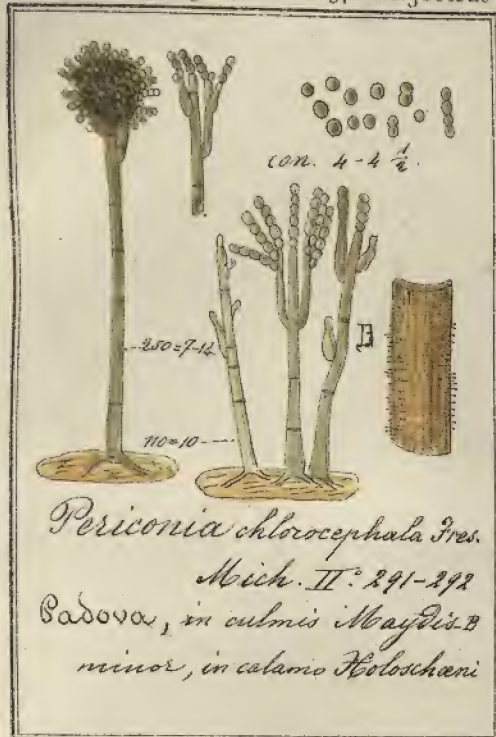 con. 4-4 1/2.
B
250=7-12
110=10
Periconia chlorocephala Fres.
Mich. II.° 291-292
Padova, in culmis Maydis-B
minor, in calamo Holoschœni